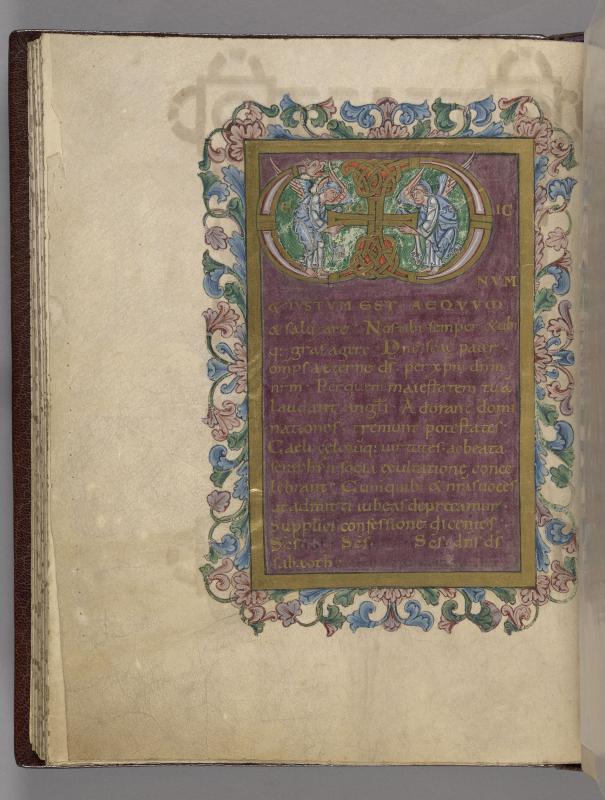 e IG
NUM
& IUSTUM EST AEQUUM
& salutare Nos tibi semper & ubi
q: gratias agere Dne scē pater
omps aeterne ds per xpm dnm
nrm Per quem maiestatem tuā
laudant angli Adorant domi
nationes tremunt potestates
Caeli celorūq: uirtutes ac beata
seraphin socia exultatione conce
lebrant Cum quib: & nras uoces
ut admitti iubeas deprecamur
Supplici confessione dicentes
Scs Scs Scs dns ds
sabaoth